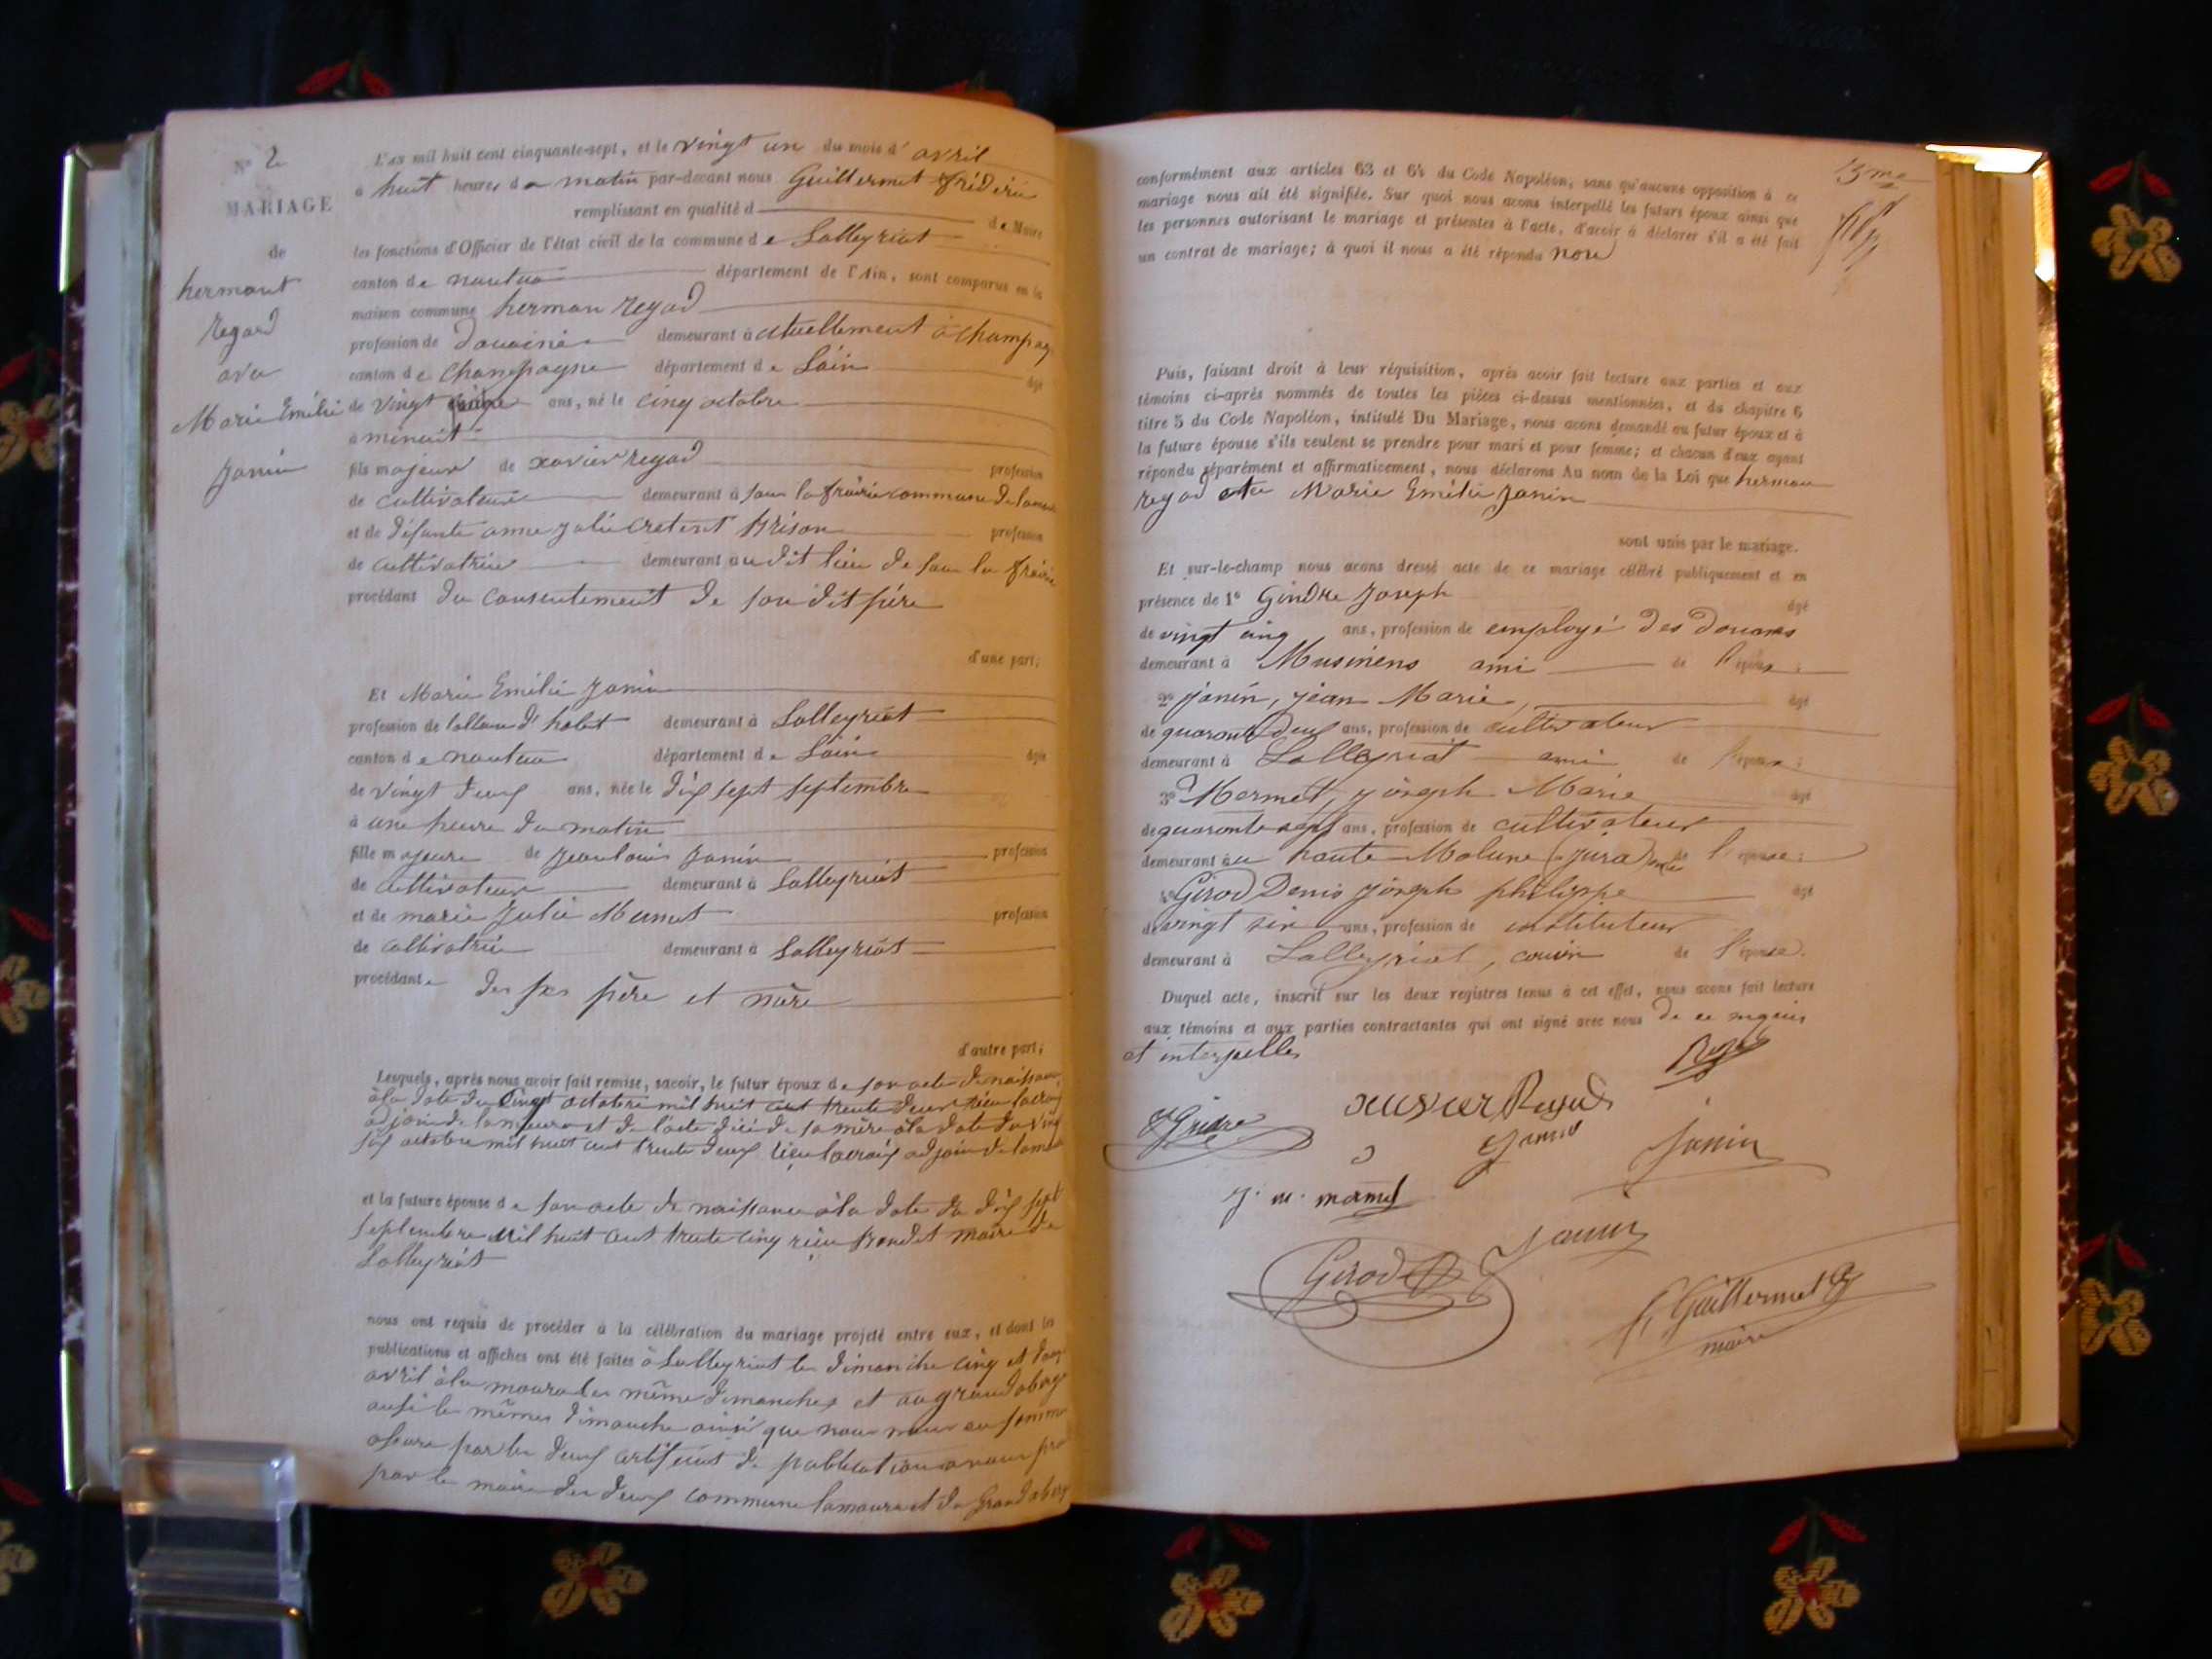 N° 2
MARIAGE
de
hermant
Regard
avec
Marie Emélie
Janin
L'an mil huit cent cinquante-sept, et le vingt un du mois d' avril
à huit heures du matin par-devant nous Guillermet frédéric
remplissant en qualité d de Maire
les fonctions d'Officier de l'état civil de la commune de Lalleyriat
canton de nantua département de l'Ain, sont comparus en la
maison commune herman regad
profession de douanier demeurant à actuellement à champag
canton de Champagne département de Lain âgé
de vingt ans, né le cinq octobre
à minuit
fils majeur de xavier regad profession
de cultivateur demeurant à sous la frasse commune de lamou
et de défunte anne julie cretent prison profession
de cultivatrice demeurant au dit lieu de sous la
procédant du consentement de son dit père
d'une part;
Et Marie Emélie Janin
profession de demeurant à Lalleyriat
canton de nantua département de Lain âgée
de vingt deux ans, née le dix sept septembre
à une heure du matin
fille majeure de Jean louis Janin profession
de cultivateur demeurant à Lalleyriat
et de marie Julie Mermet profession
de cultivatrice demeurant à Lalleyriat
procédante des ses père et mère
d'autre part;
Lesquels, après nous avoir fait remise, savoir, le futur époux de son acte de naissance
à la date du cinq octobre mil huit cent trente deux
adjoint de lamoura et de l'acte de de sa mère à la date du vingt
six octobre mil huit cent trente deux adjoint de lamou
et la future épouse de son acte de naissance à la date du dix sept
septembre mil huit cent trente cinq maire de
Lalleyriat
nous ont requis de procéder à la célébration du mariage projeté entre eux, et dont les
publications et affiches ont été faites à Lalleyriat les dimanche cinq et douze
avril à la moura les même dimanches et au grand aberg
ausi le mêmes dimanche ainsi que nous nous en somme
assure par les deux certificats de publication
par le maire des deux commune lamoura et du Grand aberg
13me
conformément aux articles 63 et 64 du Code Napoléon, sans qu'aucune opposition à ce
mariage nous ait été signifiée. Sur quoi nous avons interpellé les futurs époux ainsi que
les personnes autorisant le mariage et présentes à l'acte, d'avoir à déclarer s'il a été fait
un contrat de mariage; à quoi il nous a été répondu non
Puis, faisant droit à leur réquisition, après avoir fait lecture aux parties et aux
témoins ci-après nommés de toutes les pièces ci-dessus mentionnées, et du chapitre 6
titre 5 du Code Napoléon, intitulé Du Mariage, nous avons demandé au futur époux et à
la future épouse s'ils veulent se prendre pour mari et pour femme; et chacun d'eux ayant
répondu séparément et affirmativement, nous déclarons Au nom de la Loi que herman
regad et Marie Emélie Janin
sont unis par le mariage.
Et sur-le-champ nous avons dressé acte de ce mariage célébré publiquement et en
présence de 1° Gindre Joseph âgé
de vingt cinq ans, profession de employé des douanes
demeurant à Musiniens ami de l'époux;
2° Janin, jean Marie, âgé
de quarante deux ans, profession de cultivateur
demeurant à Lalleyriat ami de l'époux;
3° Mermet, joseph Marie âgé
de quarante sept ans, profession de cultivateur
demeurant à la haute Molune (Jura) de l'épouse;
4° Girod Denis joseph philippe âgé
de vingt six ans, profession de instituteur
demeurant à Lalleyriat, cousin de l'épouse.
Duquel acte, inscrit sur les deux registres tenus à cet effet, nous avons fait lecture
aux témoins et aux parties contractantes qui ont signé avec nous de ce requis
et interpellés
Regad
xavier Regad
J Gindre
Janin
Janin
j. m. mermet
Janin
Girod
F. Guillermet
maire